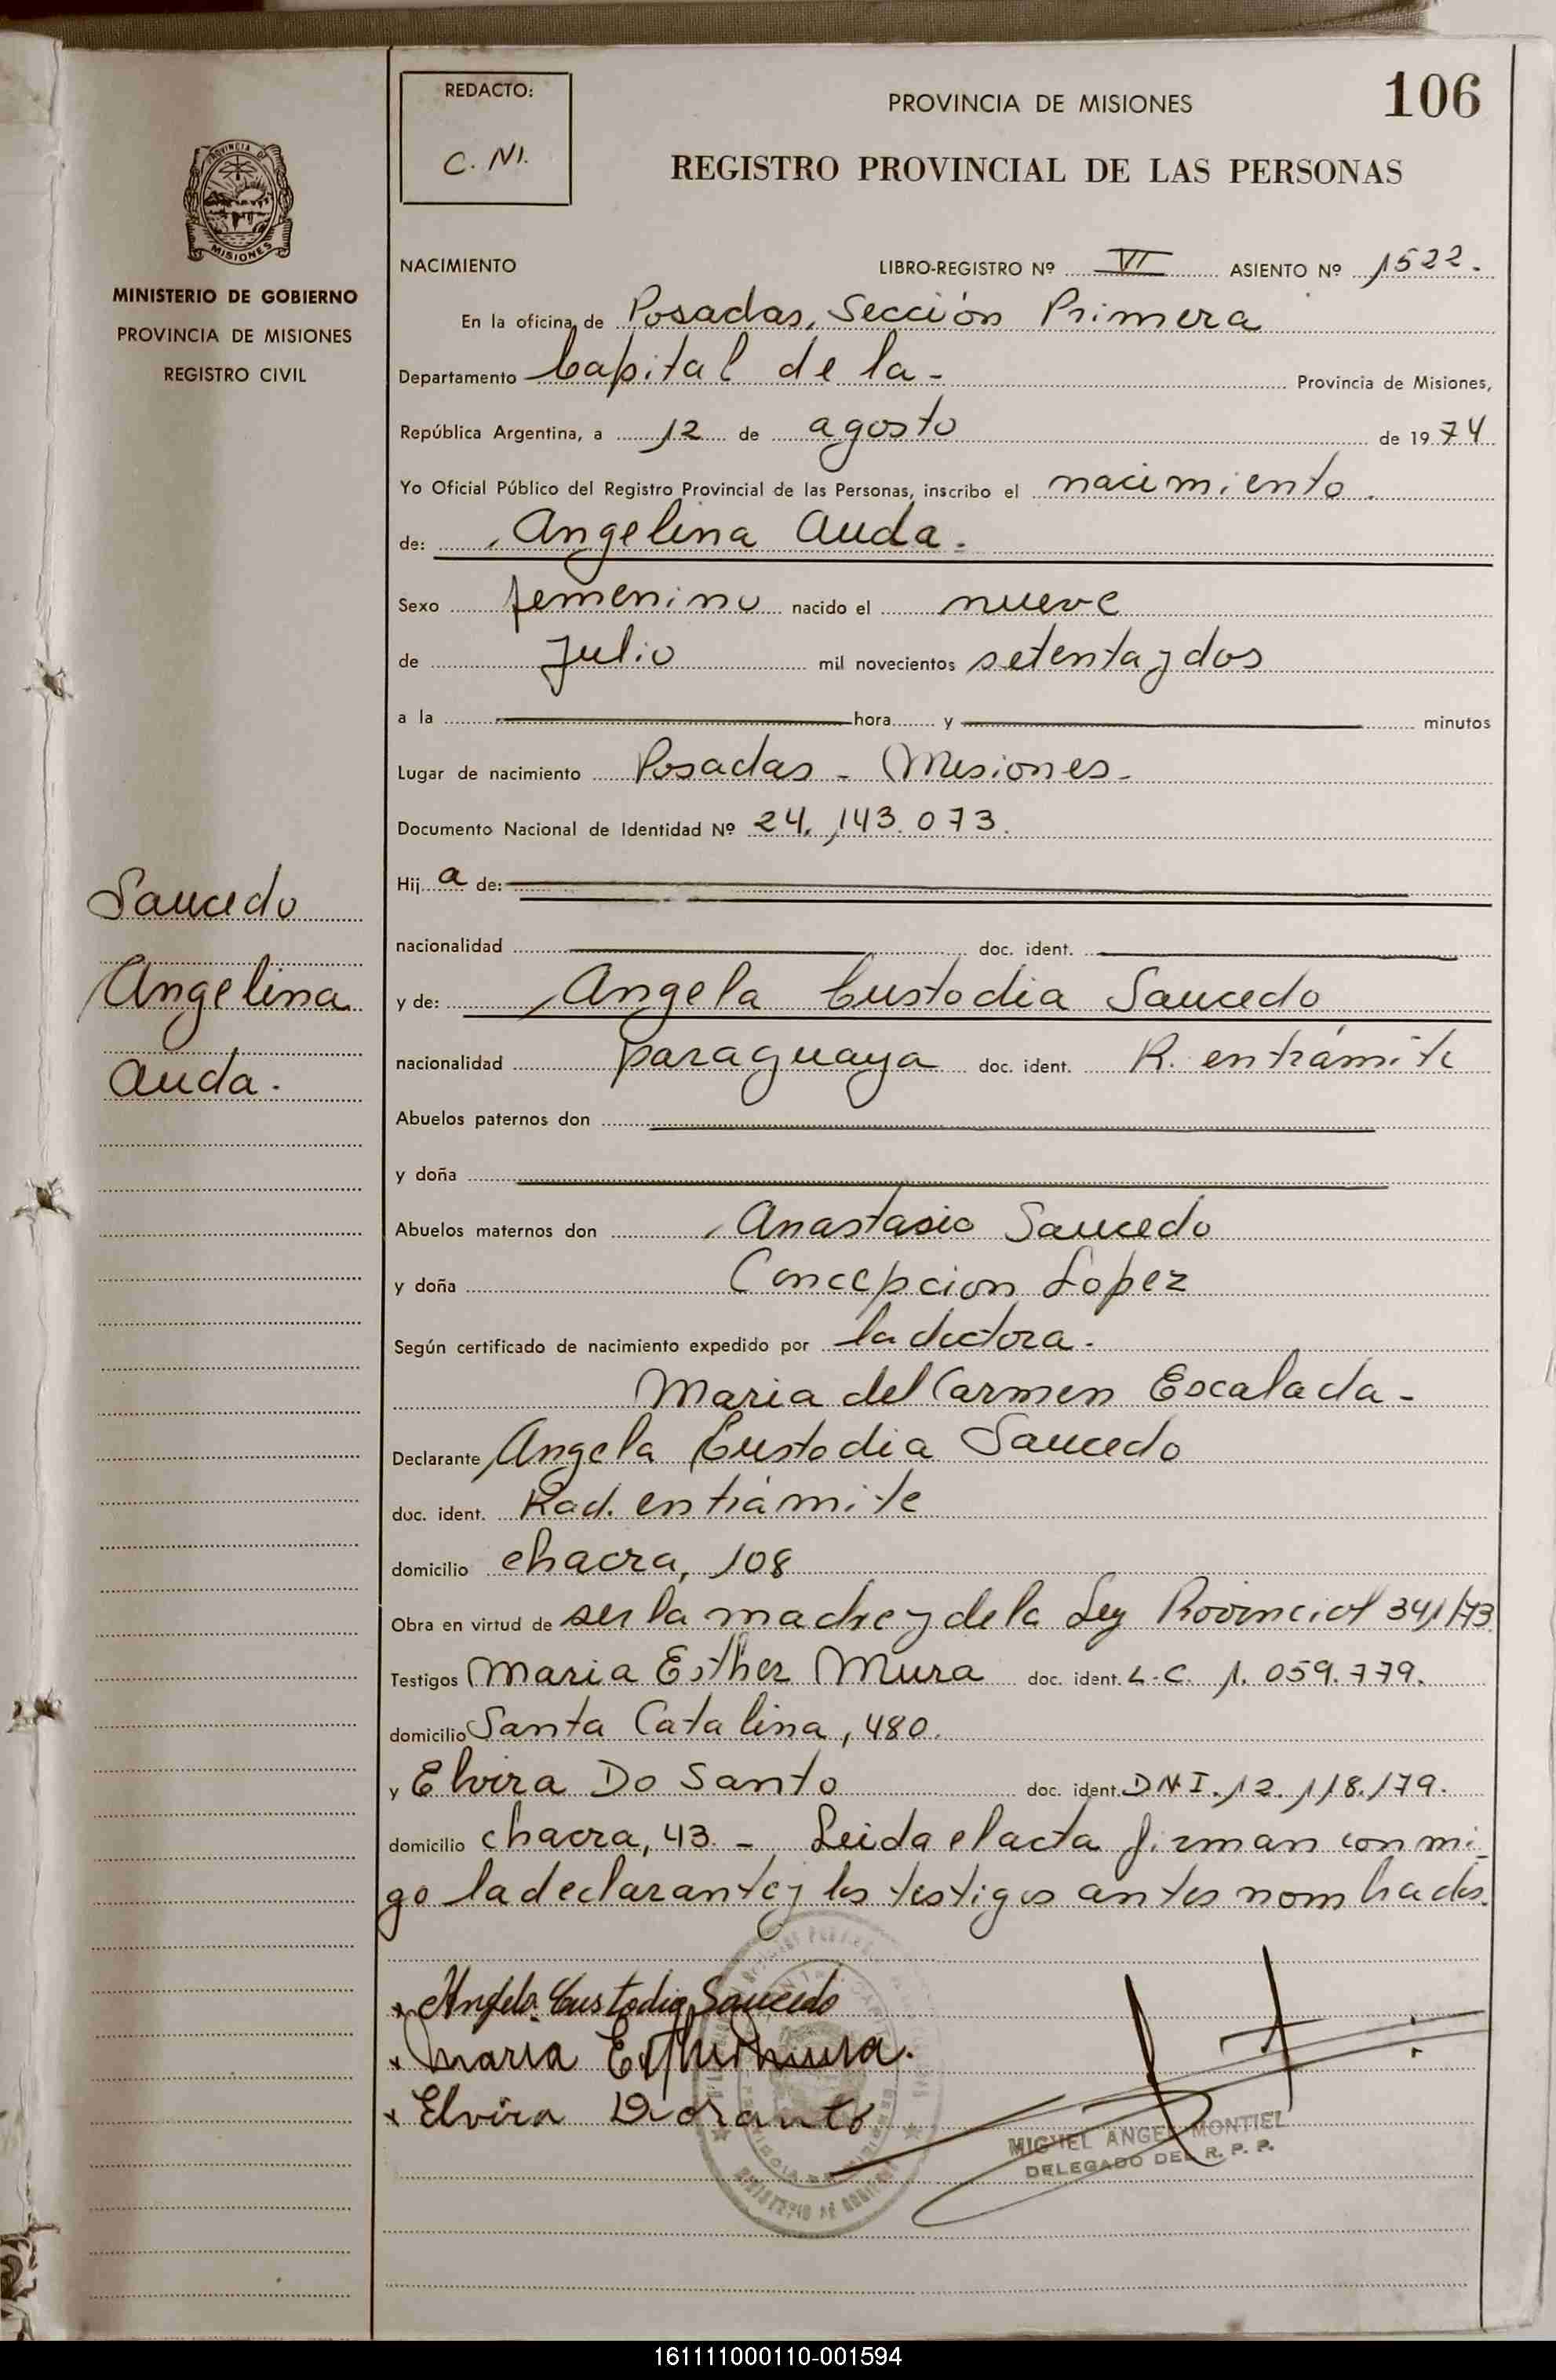 REDACTO:
C. M.
PROVINCIA DE MISIONES
106
REGISTRO PROVINCIAL DE LAS PERSONAS
PROVINCIA DE
MISIONES
MINISTERIO DE GOBIERNO
PROVINCIA DE MISIONES
REGISTRO CIVIL
NACIMIENTO LIBRO-REGISTRO Nº VI ASIENTO Nº 1522.
En la oficina de Posadas, Sección Primera
Departamento Capital de la - Provincia de Misiones,
República Argentina, a 12 de agosto de 1974
Yo Oficial Público del Registro Provincial de las Personas, inscribo el nacimiento.
de: Angelina Auda.
Sexo femenino nacido el nueve
de Julio mil novecientos setenta y dos
a la hora y minutos
Lugar de nacimiento Posadas - Misiones-
Documento Nacional de Identidad Nº 24.143.073.
Hij a de:
nacionalidad doc. ident.
y de: Angela Custodia Saucedo
nacionalidad paraguaya doc. ident. R. en trámite
Abuelos paternos don
y doña
Abuelos maternos don Anastasio Saucedo
y doña Concepcion Lopez
Según certificado de nacimiento expedido por la doctora.
Maria del Carmen Escalada-
Declarante Angela Custodia Saucedo
doc. ident. Rad. en trámite
domicilio chacra, 108
Obra en virtud de ser la madre y de la Ley Provincial 341/73
Testigos Maria Esther Mura doc. ident. L.C. 1.059.779.
domicilio Santa Catalina, 480.
y Elvira Do Santo doc. ident. DNI.12.118.179.
domicilio chacra, 43. - Leida el acta firman con mi-
go la declarante y los testigos antes nombrados.
Saucedo
Angelina
Auda.
x Angela Custodia Saucedo
x Maria Esther Mura.
x Elvira Dosanto
MIGUEL ANGEL MONTIEL
DELEGADO DEL R. P. P.
161111000110-001594